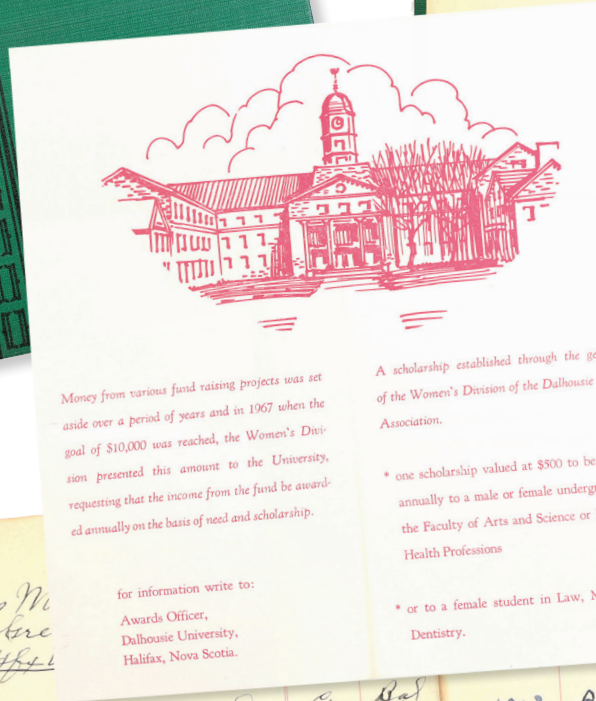 Money from various fund raising projects was set
aside over a period of years and in 1967 when the
goal of $10,000 was reached, the Women's Divi-
sion presented this amount to the University,
requesting that the income from the fund be award-
ed annually on the basis of need and scholarship.
for information write to:
Awards Officer,
Dalhousie University,
Halifax, Nova Scotia.
A scholarship established through the
of the Women's Division of the Dalhousie
Association.
* one scholarship valued at $500 to be
annually to a male or female
the Faculty of Arts and Science or
Health Professions
* or to a female student in Law,
Dentistry.
Bal